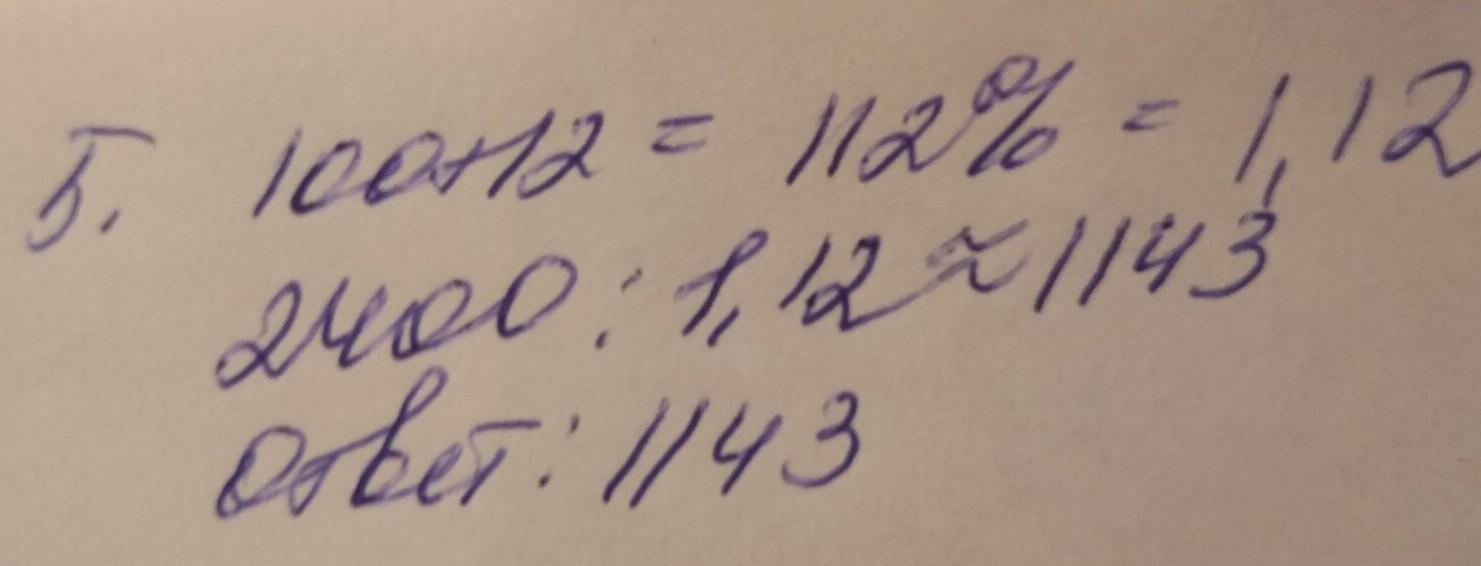 5. 100+12 = 112% = 1,12
2400 : 1,12 ≈ 1143
Ответ: 1143